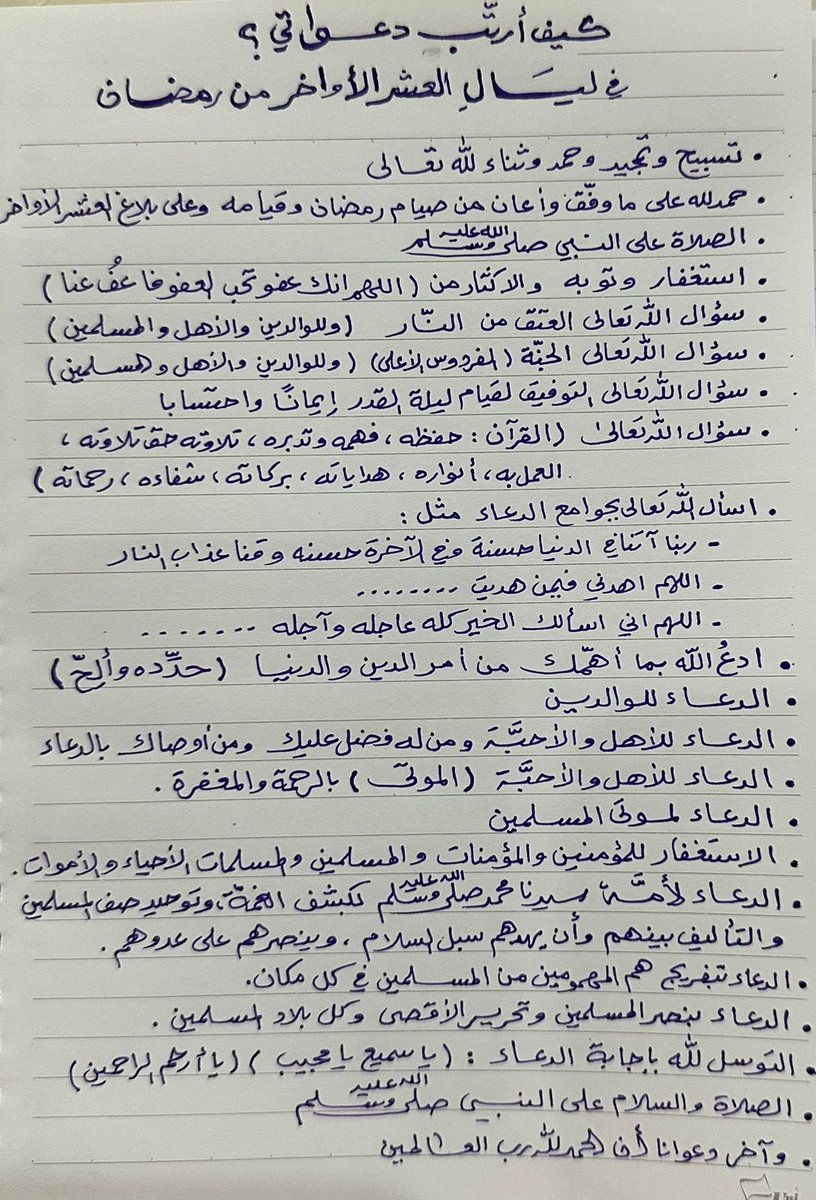 كيف أرتّب دعواتي ؟
في ليَالِ العشر الأواخر من رمضان
• تسبيح وتمجيد وحمد وثناء لله تعالى
• حمد لله على ما وفّق وأعان من صيام رمضان وقيامه وعلى بلاغ العشر الأواخر
• الصلاة على النبي صلى الله عليه وسلم
• استغفار وتوبة والاكثار من (اللهم انك عفو تحب العفو فاعفُ عنا)
• سؤال الله تَعالى العتق من النّار (وللوالدين والأهل والمسلمين)
• سؤال الله تَعالى الجنّة (الفردوس الأعلى) (وللوالدين والأهل والمسلمين)
• سؤال الله تَعالى التوفيق لقيام ليلة القدر إيمانًا واحتسابا
• سؤال الله تَعالى (القرآن : حفظه ، فهمه وتدبره ، تلاوته حق تلاوته ،
العمل به ، أنواره ، هداياته ، بركاته ، شفاءه ، رحماته )
• اسأل الله تَعالى بجوامع الدعاء مثل :
- ربنا آتنا في الدنيا حسنة وفي الآخرة حسنه وقنا عذاب النار
- اللهم اهدني فيمن هديت ........
- اللهم اني اسألك الخير كله عاجله وآجله .......
• ادعُ الله بما أهمّك من أمر الدين والدنيا (حدّده وألحّ)
• الدعاء للوالدين
• الدعاء للأهل والأحبَّة ومن له فضل عليك ومن أوصاك بالدعاء
• الدعاء للأهل والأحبَّة (الموتى) بالرحمة والمغفرة .
• الدعاء لموتى المسلمين
• الاستغفار للمؤمنين والمؤمنات والمسلمين والمسلمات الأحياء والأموات .
• الدعاء لأمَّة سيدنا محمد صلى الله عليه وسلم بكشف الغمّة ، وتوحيد صف المسلمين
والتأليف بينهم وأن يهدهم سبل السلام ، وينصرهم على عدوهم .
• الدعاء بتفريج هم المهمومين من المسلمين في كل مكان .
• الدعاء بنصر المسلمين وتحرير الأقصى وكل بلاد المسلمين .
• التوسل لله بإجابة الدعاء : (يا سميع يا مجيب) (يا أرحم الراحمين)
• الصلاة والسلام على النبي صلى الله عليه وسلم
• وآخر دعوانا أن الحمد لله رب العالمين